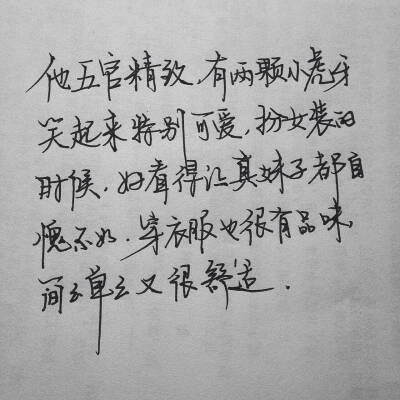 他五官精致,有两颗小虎牙
笑起来特别可爱,扮女装的
时候,好看得让真妹子都自
愧不如.穿衣服也很有品味,
简々单々又很舒适.